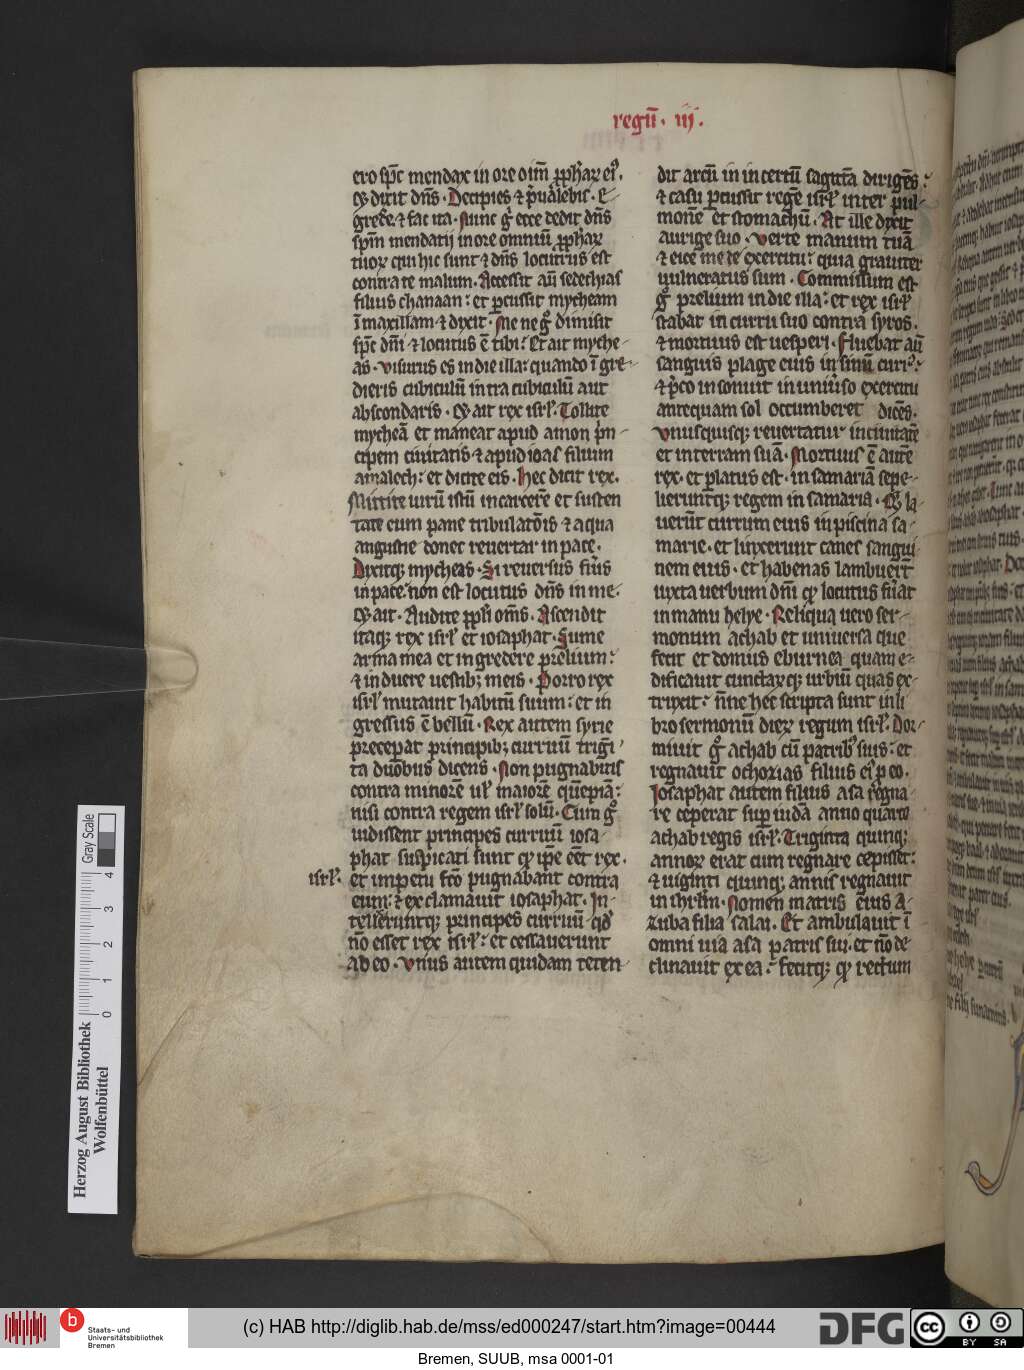 regū · iij ·
ero sp̄c mendax in ore oīm ꝓph̄aꝝ eiꝰ.
⁊ dixit dn̄s · Decipies & p̄ualebis · E-
gredere & fac ita · Nunc gͥ ecce dedit dn̄s
sp̄m mendatij in ore omniū ꝓph̄aꝝ
tuoꝝ qui hic sunt & dn̄s locutus est
contra te malum · Accessit aū sedechias
filius chanaan : et ꝑcussit mycheam
ī maxillam & dixit · Me ne gͦ dimisit
sp̄c dn̄i & locutus ē tibi : Et ait myche-
as · Visurus es in die illa : quando īgre-
dieris cubiculū intra cubiculū aut
abscondaris · Et ait rex isrl̓ · Tollite
mycheā et maneat apud amon p̄n-
cipem ciuitatis & apud ioas filium
amalech : et dicite eis · Hec dicit rex ·
Mittite uirū istū in carcerē et susten
tate eum pane tribulatōis & aqua
angustie donec reuertar in pace ·
Dixitqꝫ mycheas · Si reuersus fu͛is
in pace : non est locutus dn̄s in me ·
Et ait · Audite ppl̓i om̄s · Ascendit
itaqꝫ rex isrl̓ et iosaphat · Sume
arma mea et ingredere prelium :
& induere uestibꝫ meis · Porro rex
isrl̓ mutauit habitū suum : et in
gressus ē bellū · Rex autem syrie
preceperat principibꝫ curruū trigī
ta duobus dicens · Non pugnabitis
contra minorē ul̓ maiorē quēpiā :
nisi contra regem isrl̓ solū · Cum gͦ
uidissent principes curruū iosa-
phat suspicati sunt qꝫ ip̄e eēt rex ·
isrl̓ · et impetu fc̄o pugnabant contra
eum : & exclamauit iosaphat · In-
tellexeruntqꝫ principes curruū qd̓
nō esset rex isrl̓ : et cessauerunt
ab eo · Vnus autem quidam teten-
dit arcū in incertū sagittā dirigēs :
& casu ꝑcussit regē isrl̓ inter pul-
monē et stomachū · At ille dixit
aurige suo · Verte manum tuā
& eice me de exercitu : quia grauiter
uulneratus sum · Commissum est
gͦ prelium in die illa : et rex isrl̓
stabat in curru suo contra syros ·
& mortuus est uesperi · Fluebat aū
sanguis plage eius in sinū curꝰ :
& p̄co insonuit in uniu͛so exercitu
antequam sol occumberet dicēs ·
Vnusquisqꝫ reuertatur in ciuitatē
et in terram suā · Mortuus ē autē
rex · et ꝑlatus est · in samariā sepe-
lieruntqꝫ regem in samaria · Et la-
uerūt currum eius in piscina sa-
marie · et linxerunt canes sangui
nem eius · et habenas lambuerūt
iuxta uerbum dn̄i qꝫ locutus fu͛at
in manu helye · Reliqua uero ser-
monum achab et uniuersa que
fecit et domus eburnea quam e-
dificauit cunctaꝝqꝫ urbiū quas ex-
truxit : nōne hec scripta sunt in li
bro sermonū dieꝝ regum isrl̓ · Dor-
miuit gͦ achab cū patribꝰ suis : et
regnauit ochozias filius eiꝰ ꝑ eo ·
Iosaphat autem filius asa regna-
re ceperat suꝑ iudā anno quarto
achab regis isrl̓ · Triginta quinqꝫ
annoꝝ erat cum regnare cepisset :
& uiginti quinqꝫ annis regnauit
in ihrl̄m · Nomen matris eius A-
zuba filia salai · Et ambulauit ī
omni uia asa patris sui · et nō de-
clinauit ex ea : fecitqꝫ qꝫ rectum
Gray Scale
0 1 2 3 4
Herzog August Bibliothek
Wolfenbüttel
b
Staats- und
Universitätsbibliothek
Bremen
(c) HAB http://diglib.hab.de/mss/ed000247/start.htm?image=00444
DFG
cc BY SA
Bremen, SUUB, msa 0001-01